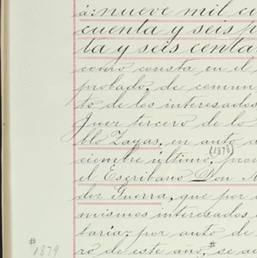 á: nueve mil ci
cuenta y seis p
ta y seis centa
como consta en el
probado, de comun
to de los interesados
Juez tercero de lo
blo Zayas, en auto
(1878)
ciembre último, pro
el Escribano Don
der Guerra, que por
mismos interesados
taria: por auto de
ro de este año,# se a
#1879